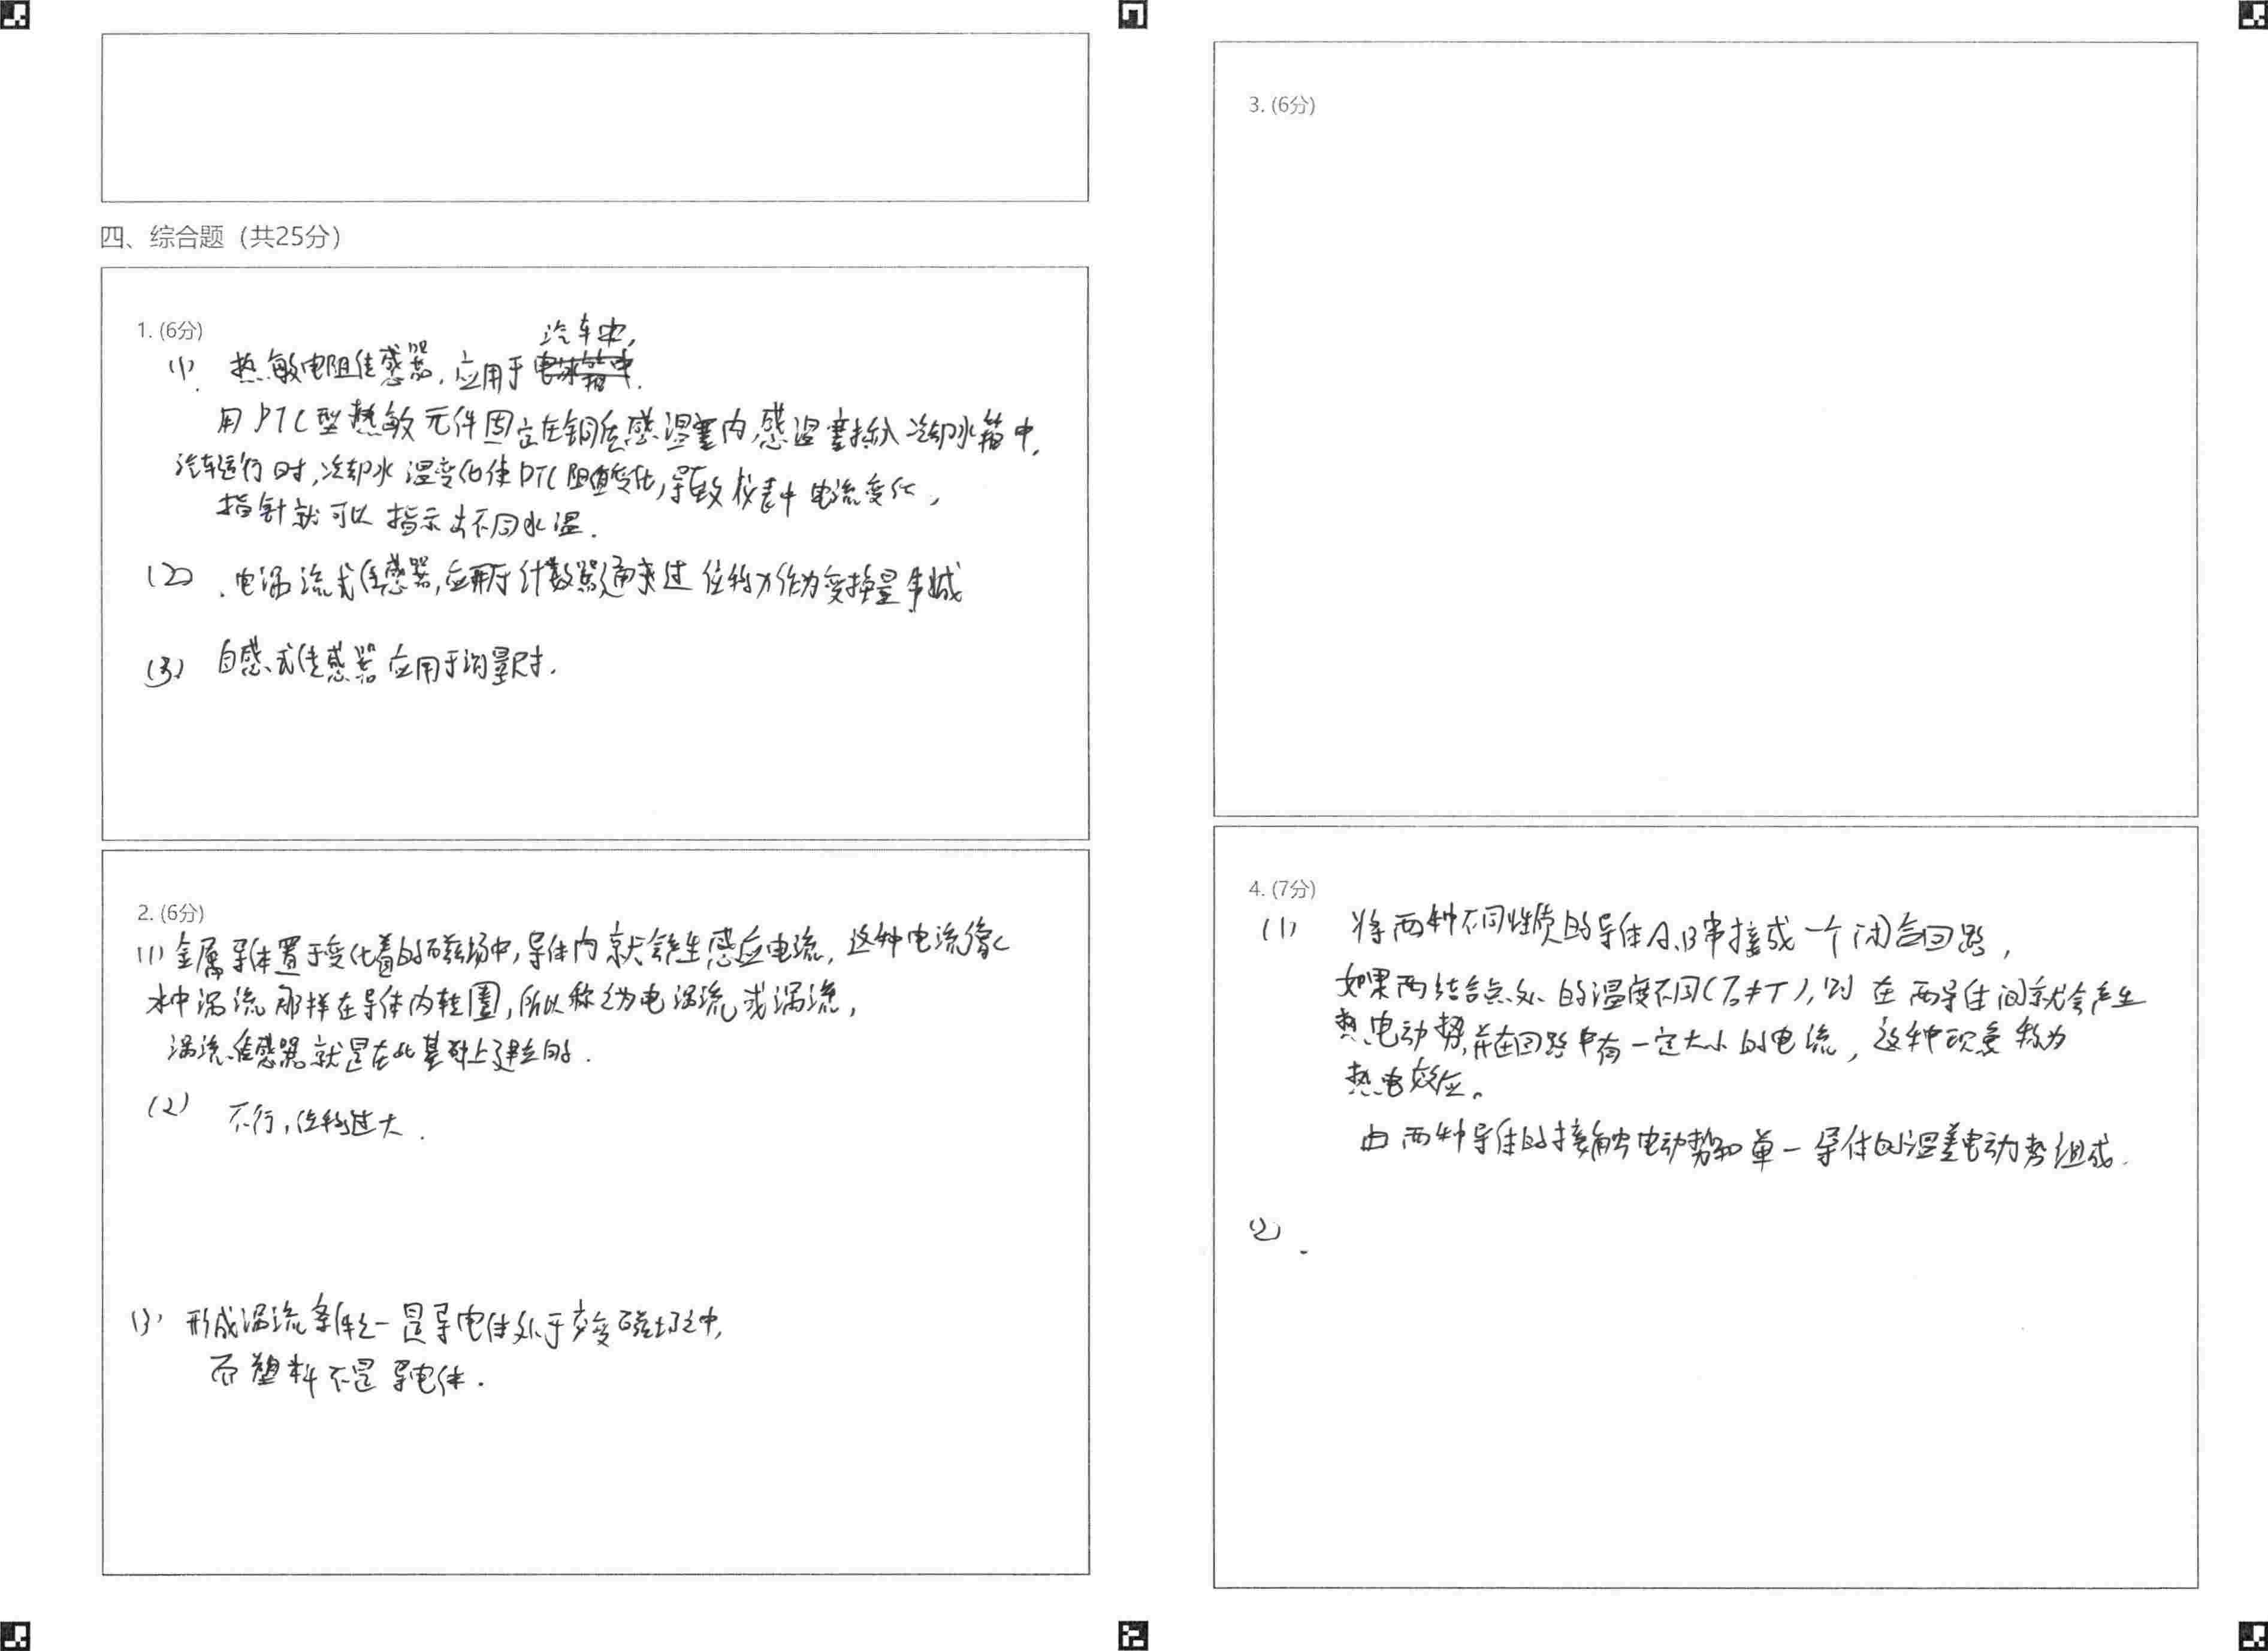 四、综合题（共25分）
1. (6分)
汽车中,
(1). 热敏电阻传感器, 应用于
用PTC型热敏元件固定在铜质感温塞内,感温塞插入冷却水箱中.
汽车运行时,冷却水温变化使PTC阻值变化,导致仪表中电流变化,
指针就可以指示出不同水温.
(2). 电涡流式传感器,应用于计数器,通过位移x作为变换量制成
(3) 自感式传感器应用于测量尺寸.
2. (6分)
(1) 金属导体置于变化着的磁场中,导体内就会产生感应电流, 这种电流像
水中涡流那样在导体内转圈,所以称之为电涡流或涡流,
涡流传感器就是在此基础上建立的.
(2) 不行,位移过大.
(3) 形成涡流条件之一是导电体处于交变磁场之中,
而塑料不是导电体.
3. (6分)
4. (7分)
(1) 将两种不同性质的导体A、B串接成一个闭合回路,
如果两结合点处的温度不同(T₀≠T),则在两导体间就会产生
热电动势,并在回路中有一定大小的电流, 这种现象称为
热电效应。
由两种导体的接触电动势和单一导体的温差电动势组成.
(2).